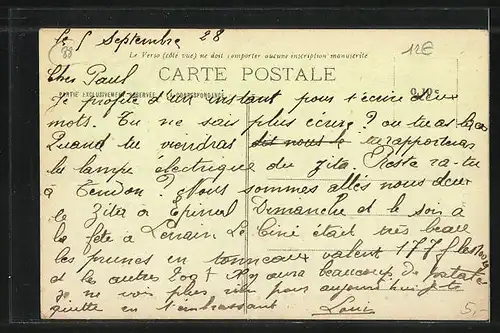 le 5 Septembre 28
Le Verso (côté vue) ne doit comporter aucune inscription manuscrite
12€
Cher Paul
CARTE POSTALE
PARTIE EXCLUSIVEMENT RÉSERVÉE A LA CORRESPONDANCE
Je profite d'un instant pour t'écrire deux
mots. Tu ne sais plus écrire ? ou tu as
Quand tu viendras dit nous le rapporteras
la lampe électrique du Zita. Reste ra-tu
à Tendon ? Nous sommes allés nous deux
le Zita à Epinal Dimanche et le soir a
la fête à Le Ciné était très beau
les prunes en tonneaux valent 177 f les
et les autres Il y aura beaucoup de
je ne vois plus rien pour aujourd'hui je te
quitte en t'embrassant
5,-